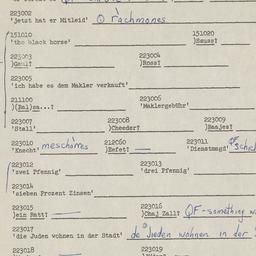 223002
'jetzt hat er Mitleid' O rachmones
151010 151020
'the black horse' )Sauss?
225003 223004
)Gaul? )Ross?
223005
'ich habe es dem Makler verkauft'
211100 223006
'Maklergebühr'
223007 223008 223009
'Stall' )Cheeder?
223010 meschorres 212060 223011
'Knecht' )Befet? 'Dienstmagd'
223012 223013
'zwei Pfennig' 'drei Pfennig'
223014
'sieben Prozent Zinsen'
223015 223016 QF-something
)ein Ratt? )Chaj Zall?
223017
'die Juden wohnen in der Stadt' de Jieden wohnen in der
223018 223019